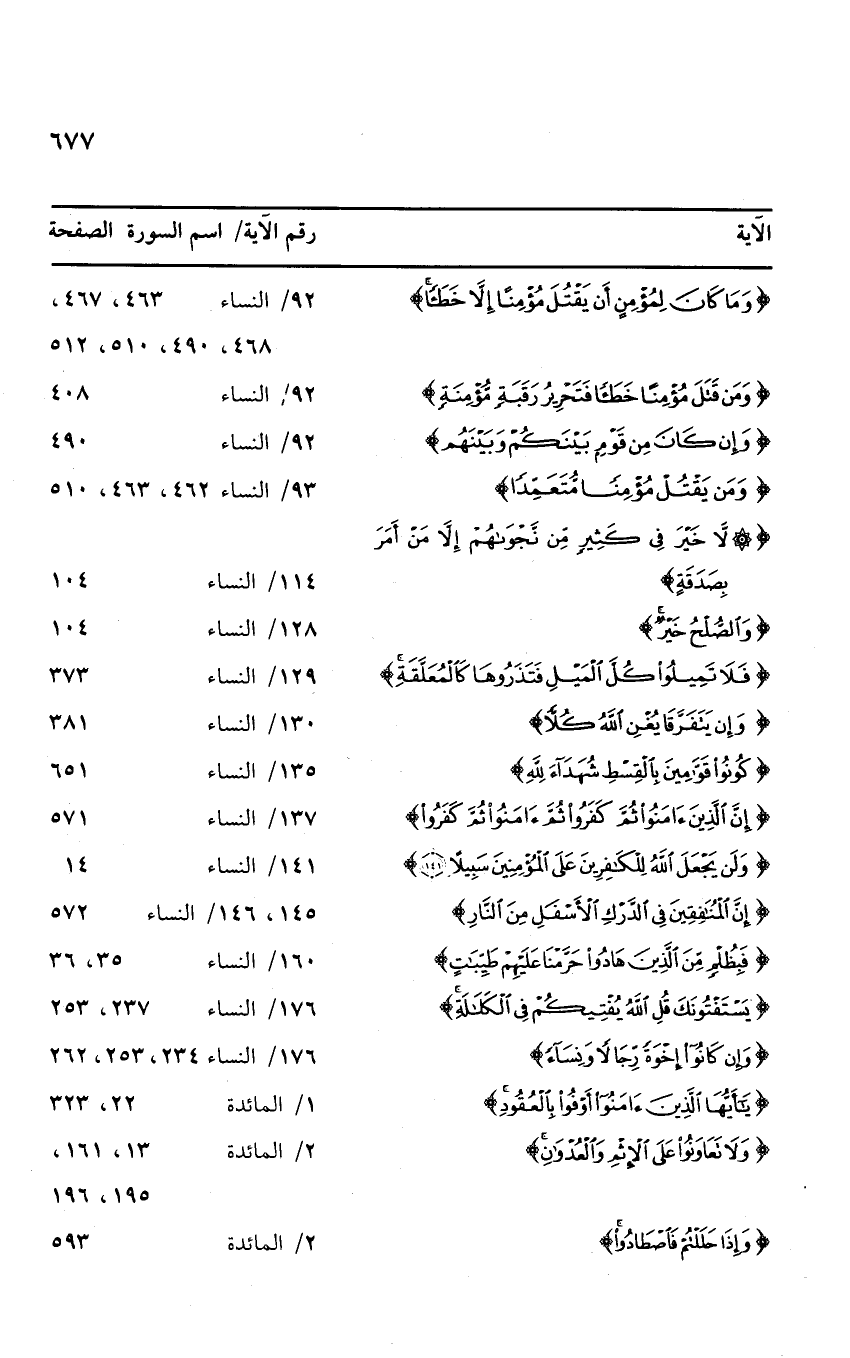 ٦٧٧
الآية رقم الآية/ اسم السورة الصفحة
﴿وَمَا كَانَ لِمُؤْمِنٍ أَن يَقْتُلَ مُؤْمِنًا إِلَّا خَطَـًٔا ۚ﴾ ٩٢/ النساء ٤٦٣، ٤٦٧،
٤٦٨، ٤٩٠، ٥١٠، ٥١٢
﴿وَمَن قَتَلَ مُؤْمِنًا خَطَـًٔا فَتَحْرِيرُ رَقَبَةٍ مُّؤْمِنَةٍ﴾ ٩٢/ النساء ٤٠٨
﴿وَإِن كَانَ مِن قَوْمٍ بَيْنَكُمْ وَبَيْنَهُم﴾ ٩٢/ النساء ٤٩٠
﴿وَمَن يَقْتُلْ مُؤْمِنًا مُّتَعَمِّدًا﴾ ٩٣/ النساء ٤٦٢، ٤٦٣، ٥١٠
﴿۞ لَّا خَيْرَ فِى كَثِيرٍ مِّن نَّجْوَىٰهُمْ إِلَّا مَنْ أَمَرَ
بِصَدَقَةٍ﴾ ١١٤/ النساء ١٠٤
﴿وَٱلصُّلْحُ خَيْرٌ ۗ﴾ ١٢٨/ النساء ١٠٤
﴿فَلَا تَمِيلُوا۟ كُلَّ ٱلْمَيْلِ فَتَذَرُوهَا كَٱلْمُعَلَّقَةِ ۚ﴾ ١٢٩/ النساء ٣٧٣
﴿وَإِن يَتَفَرَّقَا يُغْنِ ٱللَّهُ كُلًّا﴾ ١٣٠/ النساء ٣٨١
﴿كُونُوا۟ قَوَّٰمِينَ بِٱلْقِسْطِ شُهَدَآءَ لِلَّهِ﴾ ١٣٥/ النساء ٦٥١
﴿إِنَّ ٱلَّذِينَ ءَامَنُوا۟ ثُمَّ كَفَرُوا۟ ثُمَّ ءَامَنُوا۟ ثُمَّ كَفَرُوا۟﴾ ١٣٧/ النساء ٥٧١
﴿وَلَن يَجْعَلَ ٱللَّهُ لِلْكَٰفِرِينَ عَلَى ٱلْمُؤْمِنِينَ سَبِيلًا ١٤١﴾ ١٤١/ النساء ١٤
﴿إِنَّ ٱلْمُنَٰفِقِينَ فِى ٱلدَّرْكِ ٱلْأَسْفَلِ مِنَ ٱلنَّارِ﴾ ١٤٥، ١٤٦/ النساء ٥٧٢
﴿فَبِظُلْمٍ مِّنَ ٱلَّذِينَ هَادُوا۟ حَرَّمْنَا عَلَيْهِمْ طَيِّبَٰتٍ﴾ ١٦٠/ النساء ٣٥، ٣٦
﴿يَسْتَفْتُونَكَ قُلِ ٱللَّهُ يُفْتِيكُمْ فِى ٱلْكَلَٰلَةِ ۚ﴾ ١٧٦/ النساء ٢٣٧، ٢٥٣
﴿وَإِن كَانُوٓا۟ إِخْوَةً رِّجَالًا وَنِسَآءً﴾ ١٧٦/ النساء ٢٣٤، ٢٥٣، ٢٦٢
﴿يَٰٓأَيُّهَا ٱلَّذِينَ ءَامَنُوٓا۟ أَوْفُوا۟ بِٱلْعُقُودِ ۚ﴾ ١/ المائدة ٢٢، ٣٢٣
﴿وَلَا تَعَاوَنُوا۟ عَلَى ٱلْإِثْمِ وَٱلْعُدْوَٰنِ ۚ﴾ ٢/ المائدة ١٣، ١٦١،
١٩٥، ١٩٦
﴿وَإِذَا حَلَلْتُمْ فَٱصْطَادُوا۟ ۚ﴾ ٢/ المائدة ٥٩٣